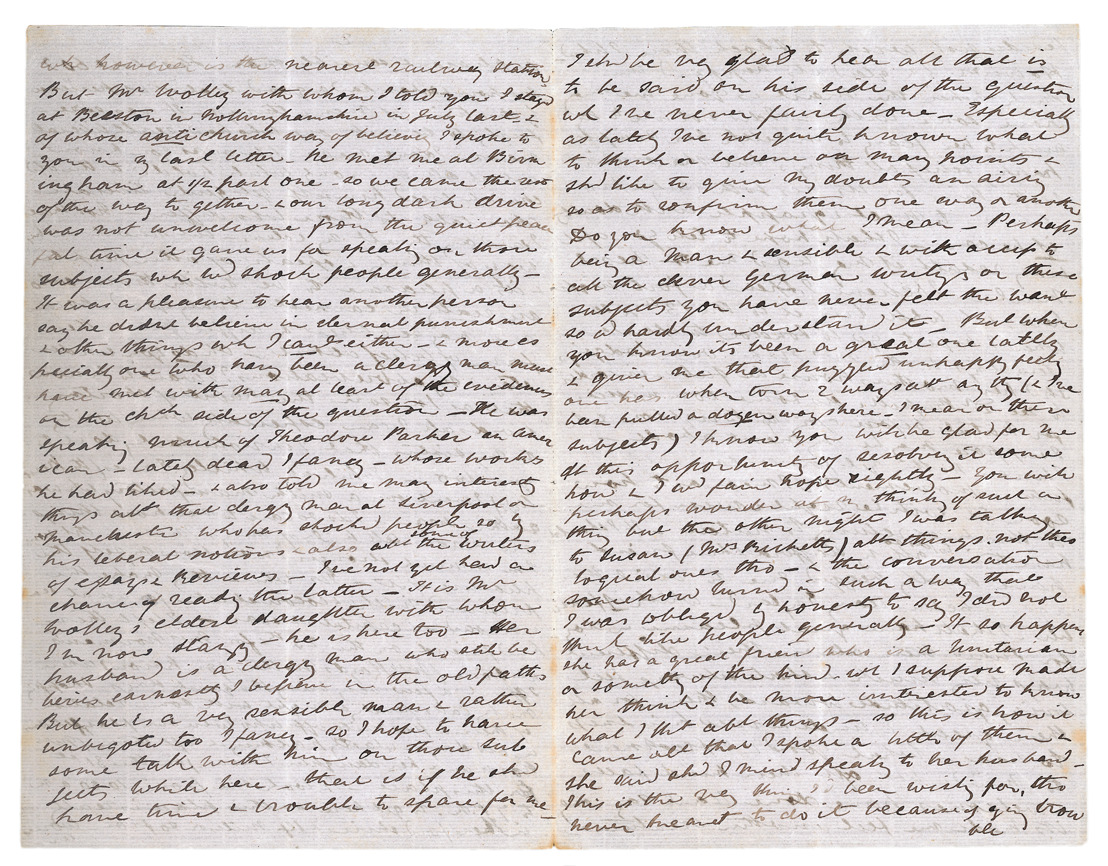 however is the nearest railway station
But Mr Wolley with whom I told you I stayed
at Beeston in Nottinghamshire in July last, &
of whose anti church way of believing I spoke to
you in my last letter - he met me at Birm
ingham at 1/2 past one - so we came the rest
of the way to gether - & our long dark drive
was not unwelcome from the quiet
time it gave us for speaking on those
subjects wh wd shock people generally -
It was a pleasure to hear another person
say he didnt believe in eternal punishment
& other things wh I cant either - & more es
pecially one who havg been a clergy man must
have met with many at least of the evidences
on the chch side of the question - He was
speaking much of Theodore Parker an Amer
ican - lately dead I fancy - whose works
he had liked - & also told me many interestg
things abt that clergy man at Liverpool or
Manchester who has shockd people so by
his liberal notions - also abt some of the writers
of essays & Reviews - I've not yet had a
chance of readg the latter - It is Mr
Wolley's eldest daughter with whom
I'm now stayg - he is here too - Her
husband is a clergy man who still be
lieves earnestly I believe in the old paths
But he is a very sensible man & rather
unbigoted too I fancy - so I hope to have
some talk with him on those sub
jects while here - that is if he shd
have time & trouble to spare for me
I shd be very glad to hear all that is
to be said on his side of the question
wh I've never fairly done - Especially
as lately I've not quite known what
to think or believe on many points &
shd like to give my doubts an airing
so as to confirm them one way or another
Do you know what I mean - Perhaps
being a Man & sensible & with access to
all the clever German writings on these
subjects you have never felt the want
so wd hardly understand it - But when
you know its been a great one lately
& given me that puzzled unhappy feeling
one has when torn 2 ways abt anythg (& I've
been pulled a dozen ways here - I mean on these
subjects) I know you will be glad for me
at this opportunity of resolving it some
how & I wd fain hope rightly - You will
perhaps wonder at my thinkg of such a
thing but the other night I was talking
to Susan (Mrs Ricketts) abt things. not theo
logical ones tho - & the conversation
somehow turnd in such a way that
I was obliged in honesty to say I did not
think like people generally - It so happens
she has a great friend who is a Unitarian
or something of the kind. wh I suppose made
her think & be more interested to know
what I tht abt things - so this is how it
came abt that I spoke a little of them &
she said shd I mind speakg to her husband -
This is the very thing I'd been wishg for, tho
never meant to do it because of givg trou
ble